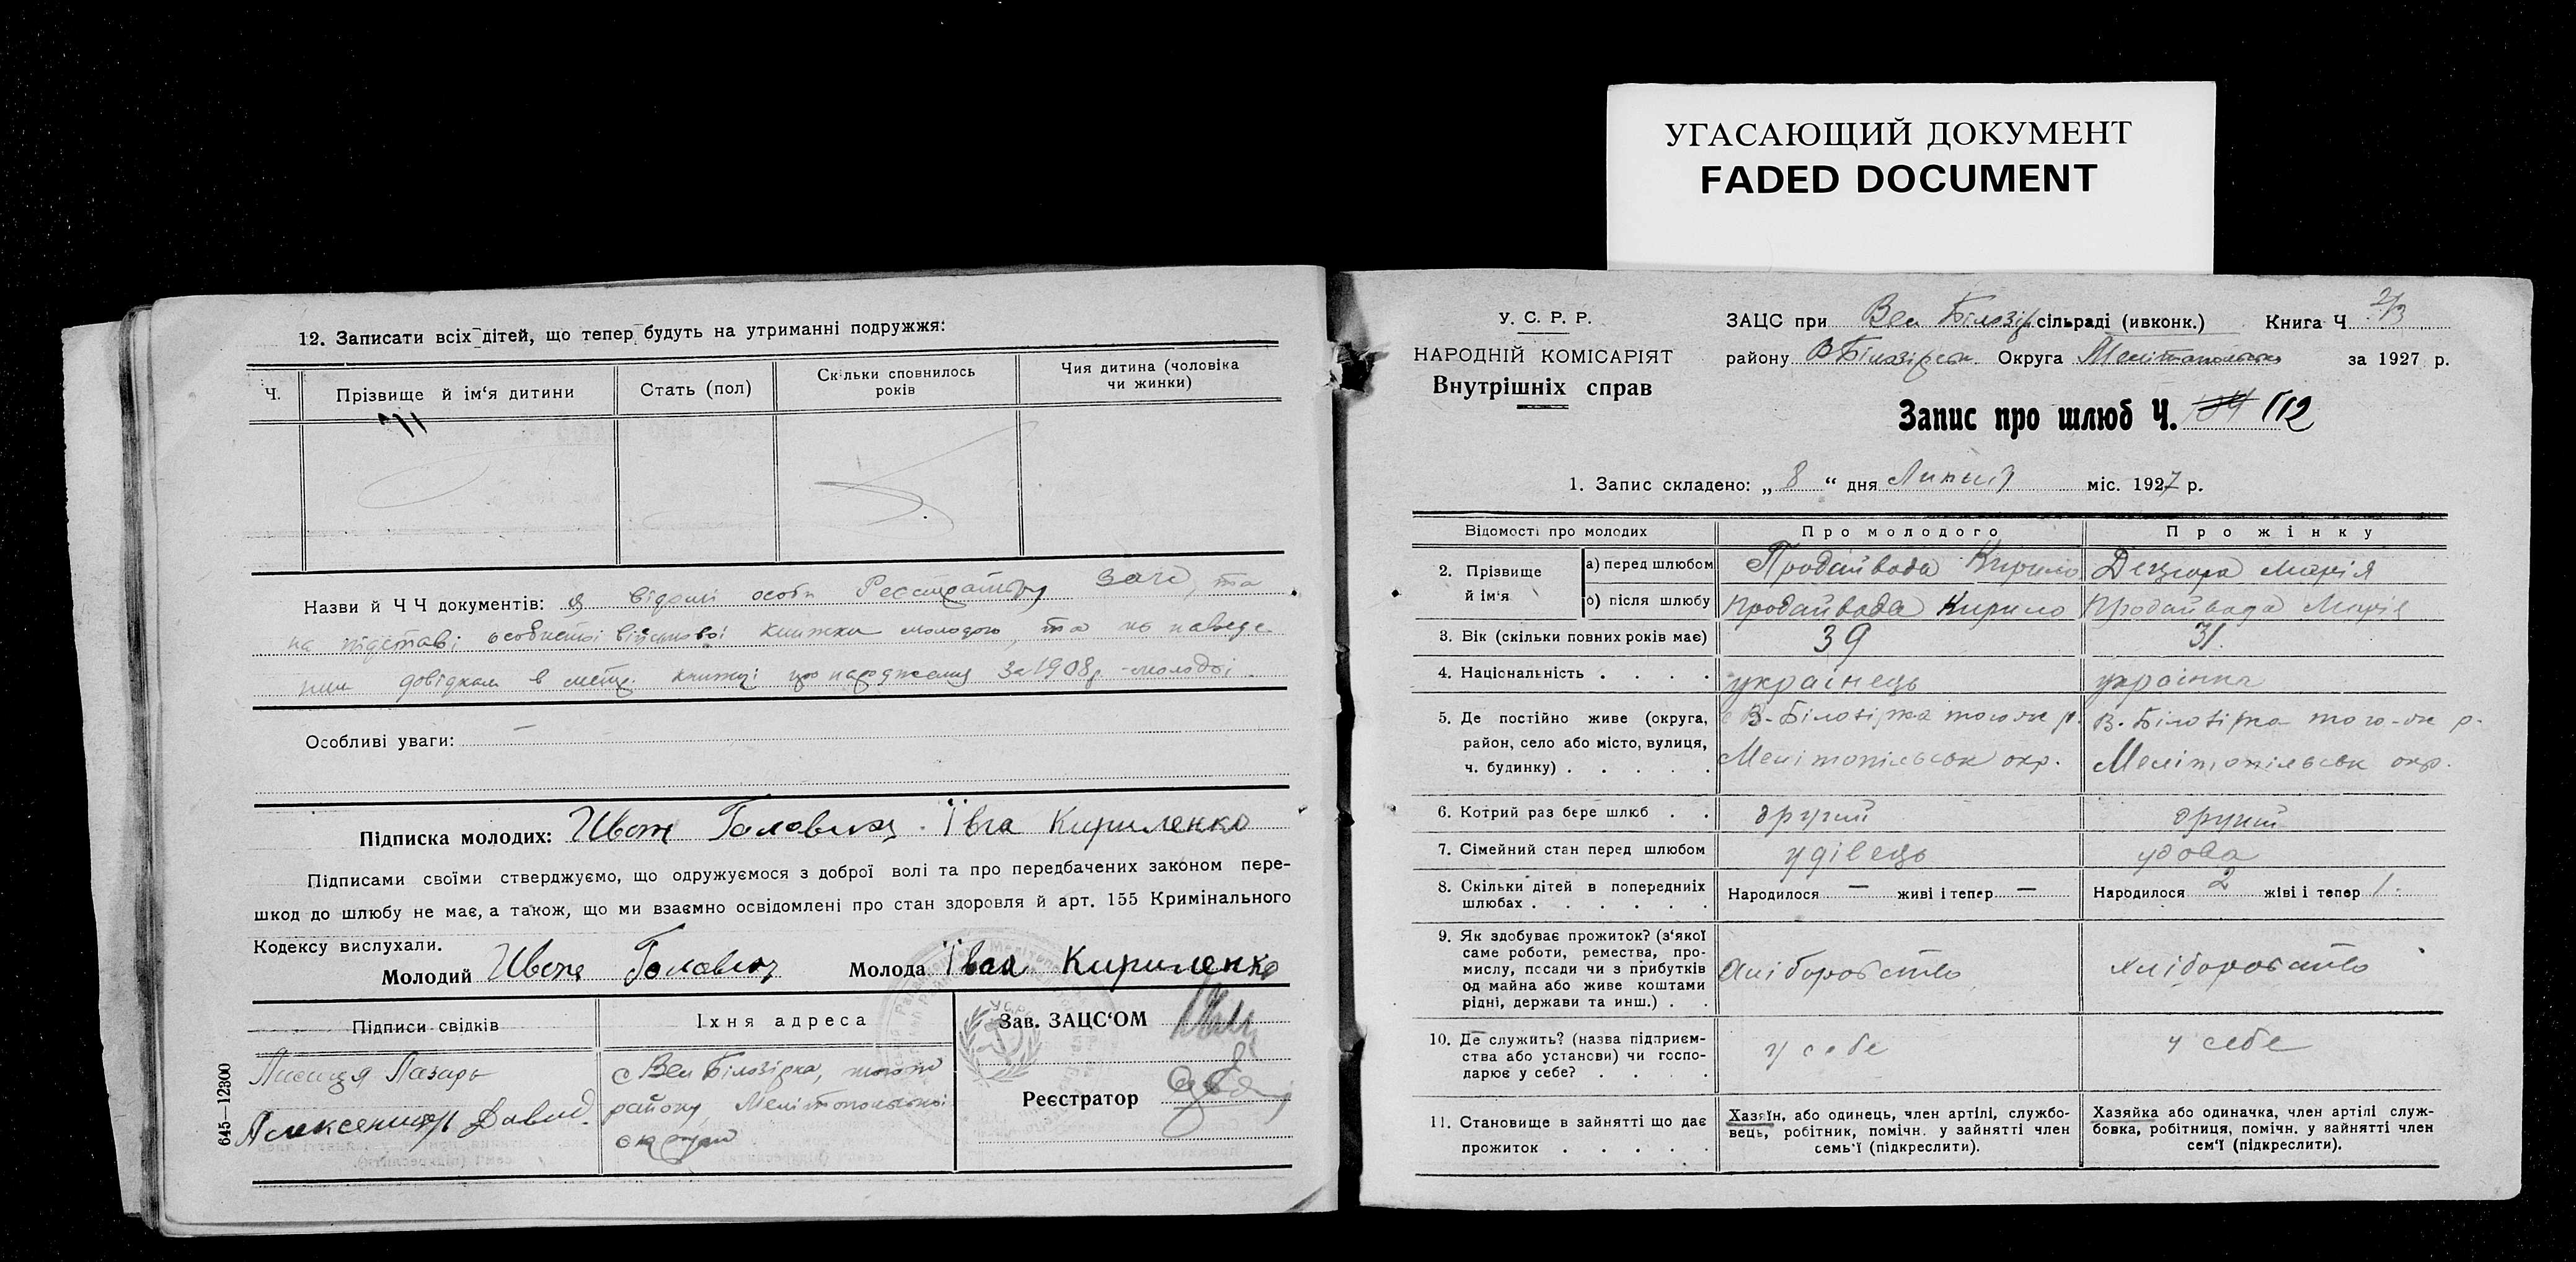 УГАСАЮЩИЙ ДОКУМЕНТ
FADED DOCUMENT
12. Записати всіх дітей, що тепер будуть на утриманні подружжя:
Ч.
Прізвище й ім'я дитини
Стать (пол)
Скільки сповнилось років
Чия дитина (чоловіка чи жинки)
Назви й Ч Ч документів: відомі особи Реєстратору ЗАГС, та
на підставі особистої військової книжки молодого, та по наведе-
ним довідкам в метр. книжці про народження за 1908 р. молодої.
Особливі уваги: —
Підписка молодих: Иван Головин Ївга Кириленко
Підписами своїми стверджуємо, що одружуємося з доброї волі та про передбачених законом пере-
шкод до шлюбу не має, а також, що ми взаємно освідомлені про стан здоровля й арт. 155 Кримінального
Кодексу вислухали.
Молодий Иван Головин Молода Ївга Кириленко
Підписи свідків
Їхня адреса
Зав. ЗАЦС'ОМ
Лисиця Лазарь
с Вел Білозірка, того ж
району, Мелітопольської
округи
Давид
Реєстратор
645—12300
У. С. Р. Р.
НАРОДНІЙ КОМІСАРІЯТ
Внутрішніх справ
ЗАЦС при Вел Білозір. сільраді (ивконк.) Книга Ч 2/3
району ВБілозірськ. Округа Мелітопольськ за 1927 р.
Запис про шлюб Ч. 104 112
1. Запис складено: „ 8 “ дня Липня міс. 1927 р.
Відомості про молодих
Про молодого
Про жінку
2. Прізвище й ім'я
а) перед шлюбом
Продайвода Кирило
Марія
б) після шлюбу
Продайвода Кирило
Продайвода Марія
3. Вік (скільки повних років має)
39
31.
4. Національність . . . .
українець
українка
5. Де постійно живе (округа,
район, село або місто, вулиця,
ч. будинку) . . . . .
В-Білозірка того-ж р.
Мелітопільськ окр.
В. Білозірка того-ж р.
Мелітопільськ окр.
6. Котрий раз бере шлюб . .
другий
другий
7. Сімейний стан перед шлюбом
удівець
удова
8. Скільки дітей в попередніх
шлюбах . . . . . .
Народилося — живі і тепер —
Народилося 2 жіві і тепер 1.
9. Як здобуває прожиток? (з'якої
саме роботи, ремества, про-
мислу, посади чи з прибутків
од майна або живе коштами
рідні, держави та инш.) . .
хліборобство
хліборобство
10. Де служить? (назва підприєм-
ства або установи) чи госпо-
дарює у себе? . . . .
у себе
у себе
11. Становище в зайнятті що дає
прожиток . . . . .
Хазяїн, або одинець, член артілі, службо-
вець, робітник, помічн. у зайнятті член
семь'ї (підкреслити).
Хазяйка або одиначка, член артілі служ-
бовка, робітниця, помічн. у зайнятті член
сем'ї (підкреслити).